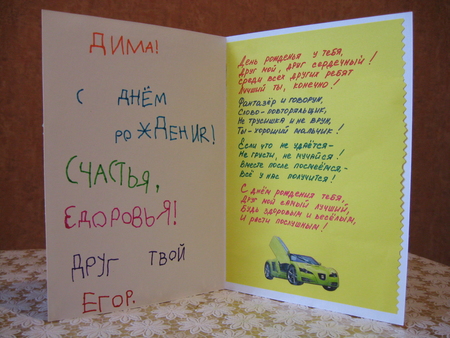 ДИМА!
С ДНЁМ
роЖДЕНИЯ!
СЧАСТЬЯ,
ЗДОРОВЬЯ!
ДРУГ ТВОЙ
ЕГОР.
День рожденья у тебя,
Друг мой, друг сердечный!
Среди всех других ребят
Лучший ты, конечно!
Фантазёр и говорун,
Слово-повторяльщик,
Не трусишка и не врун,
Ты-хороший мальчик!
Если что не удаётся-
Не грусти, не кучайся!
Вместе после посмеёмся-
Всё у нас получится!
С днём рождения тебя,
Друг мой самый лучший,
Будь здоровым и весёлым,
И расти послушным!